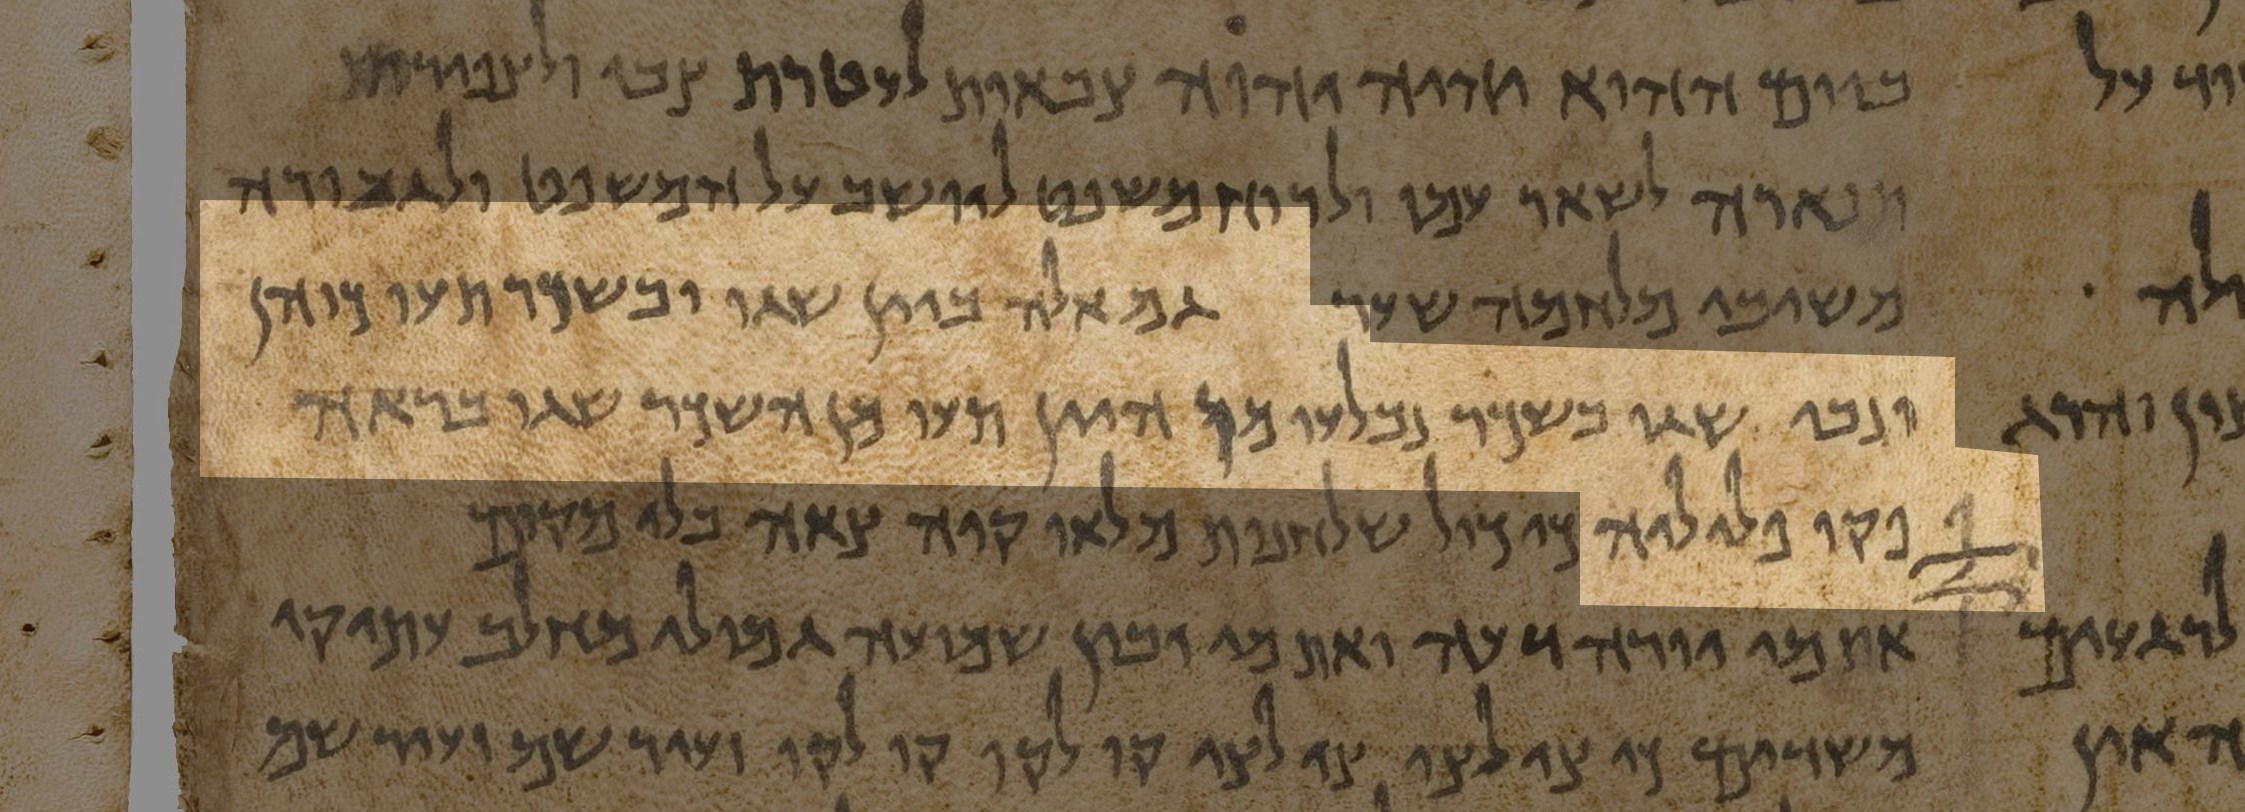 ביום ההוא יהיה יהוה צבאות לעטרת צבי ולצפירת
תפארה לשאר עמו ולרוח משפט ליושב על המשפט ולגבורה
משיבי מלחמה שער גם אלה ביין שגו ובשכר תעו כוהן
ונבי שגו בשכר נבלעו מן היין תעו מן השכר שגו בראוה
פקו פליליה כי כול שלחנות מלאו קיה צאה בלי מקום
את מי יורה דעה ואת מי יבין שמועה גמולי מחלב עתיקי
משדים כי צו לצו צו לצו קו לקו קו לקו זעיר שם זעיר שם